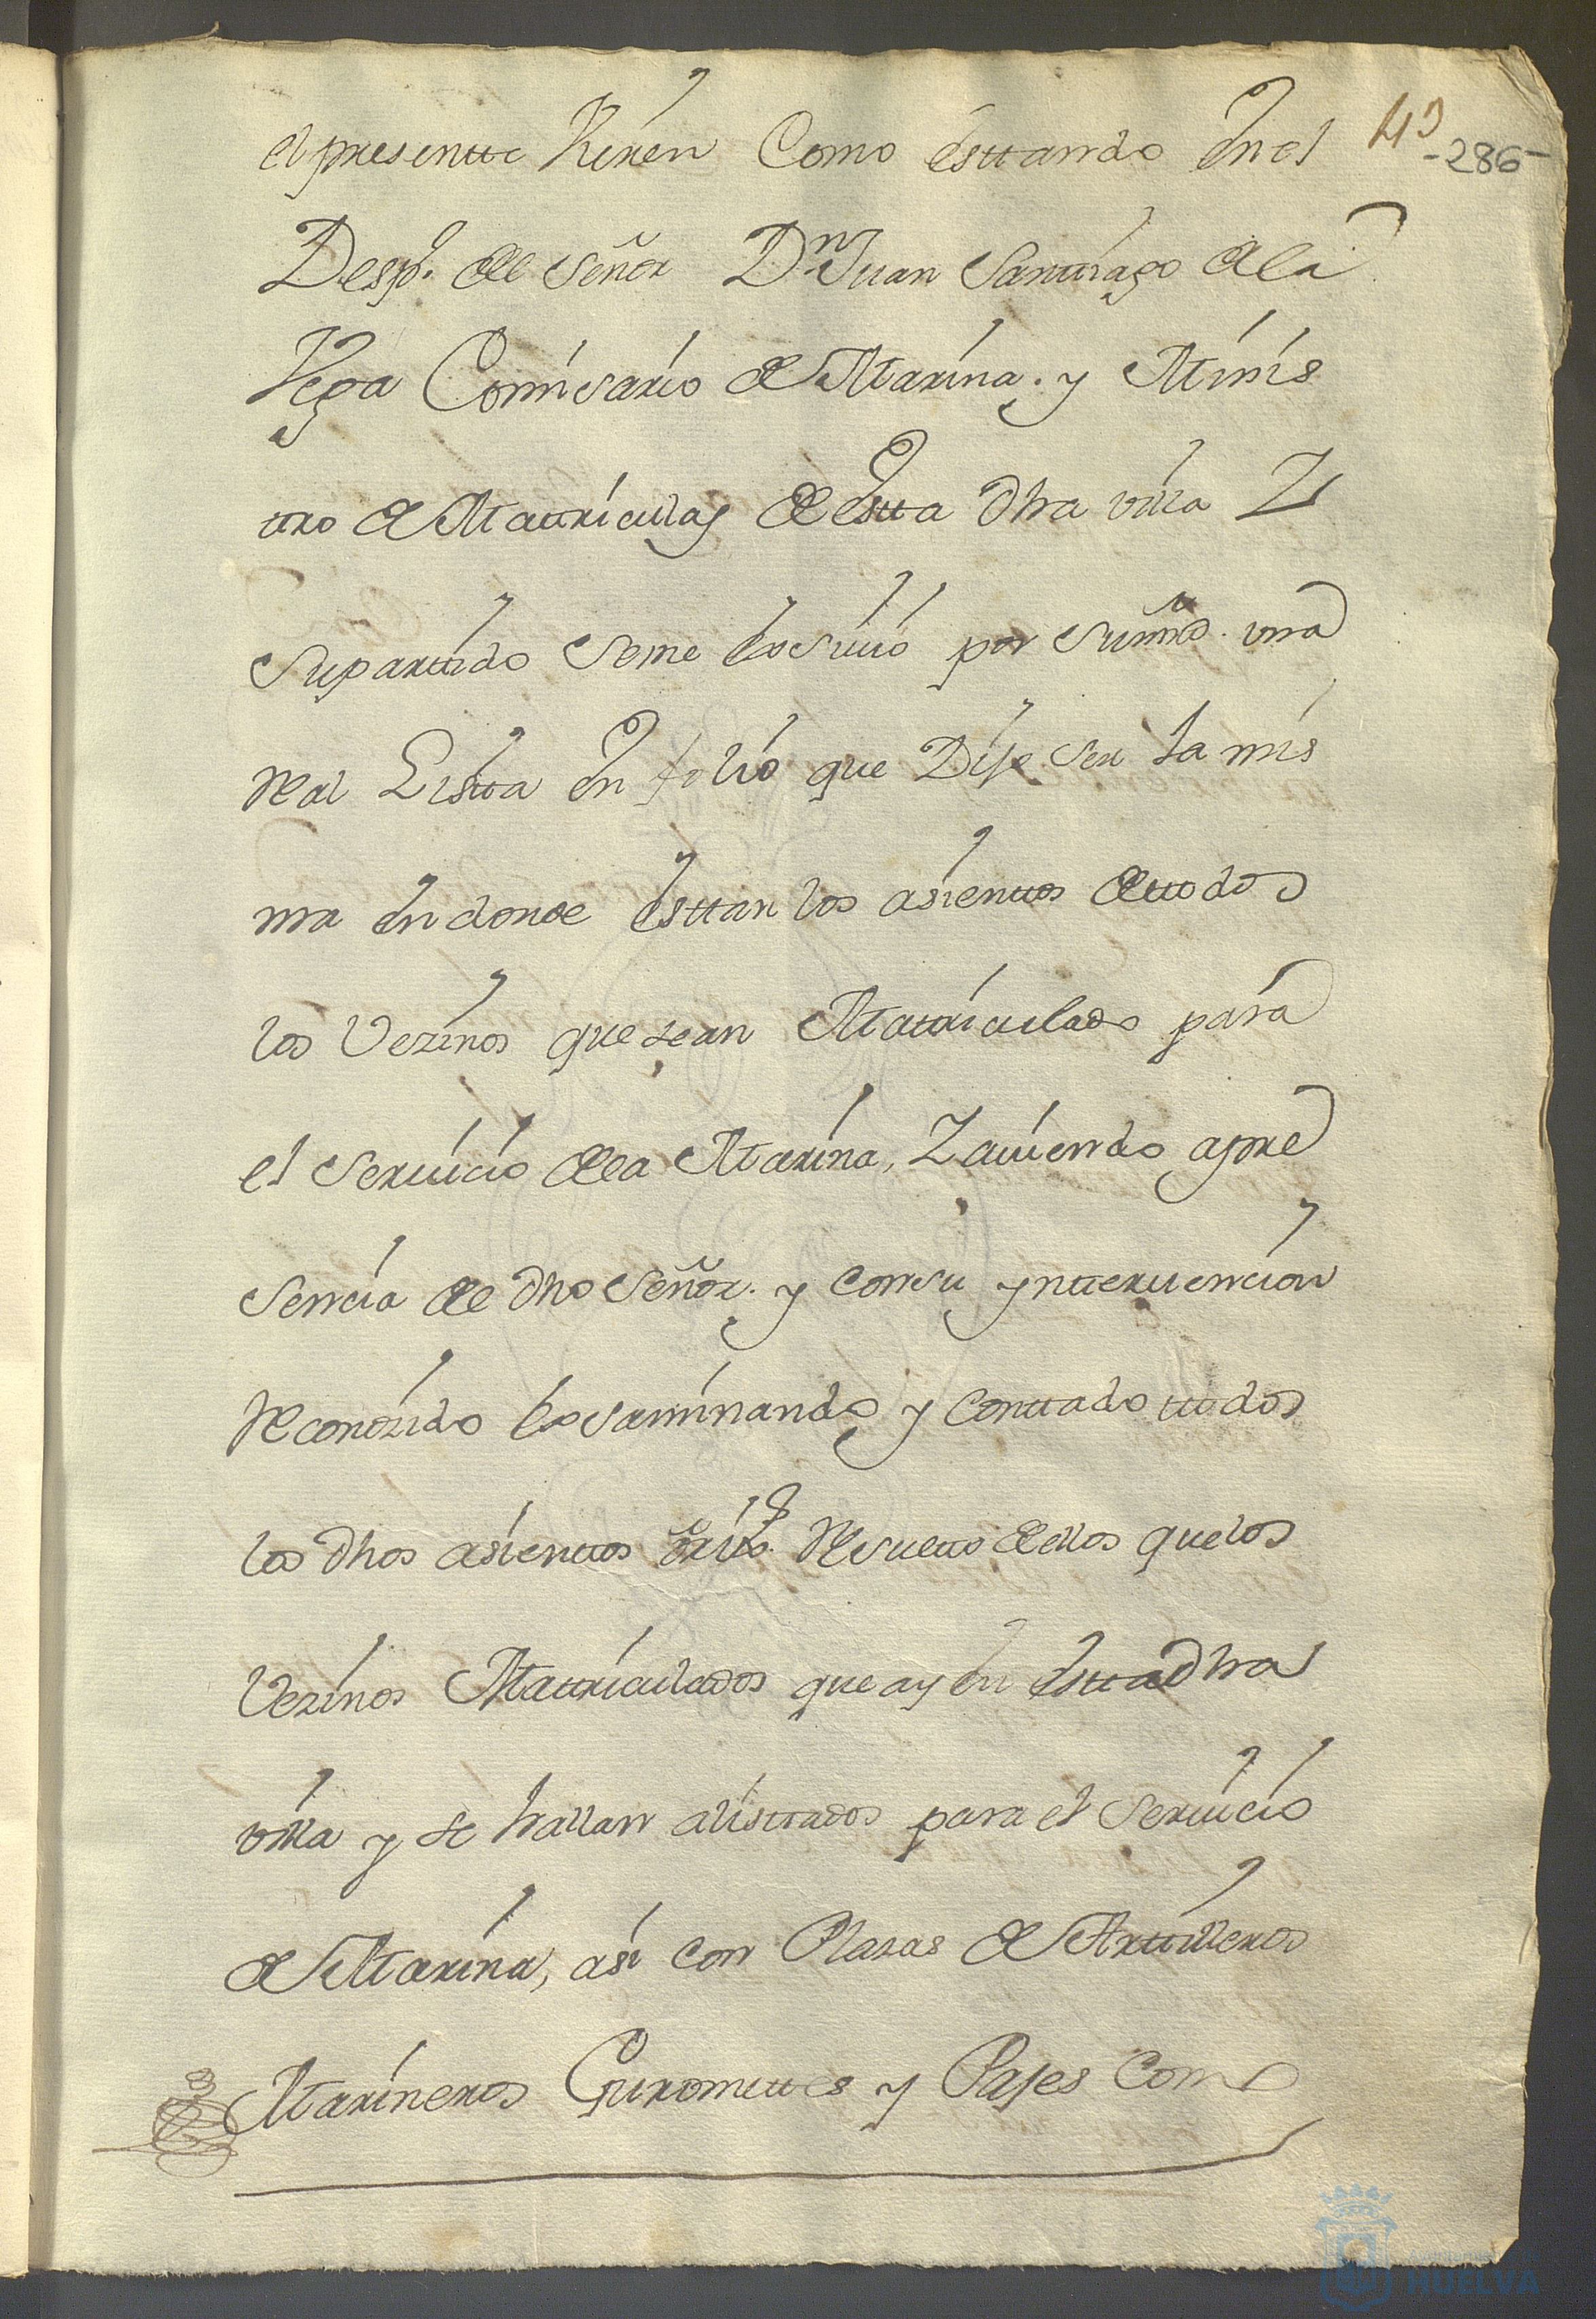 el presentte Vieren Como esttando En el
43 -286-
Desp.º de Señor D.n Juan Santtiago de la
Vega Comisario de Marina. y Minis
ttro de Mattriculas de Estta dha villa Y
Su parttido Se me Exsivio por Su mrd. una
Real Listta En folio que Dijo ser la mis
ma En donde Esttan los asienttos de ttodos
los Vezinos que sean Mattriculado para
el Servicio de la Marina, Y aviendo apre
Sencia de dho Señor. y con su ynttervencion
Reconozido Exsaminando y Conttado ttodos
los dhos asienttos Resultto de ellos que los
Vezinos Mattriculados que ay En Estta dha
villa y se hallan alisttados para el Servicio
de Marina, asi con Plasas de Arttilleros
Marineros Gurumettes y Pajes Con
HUELVA